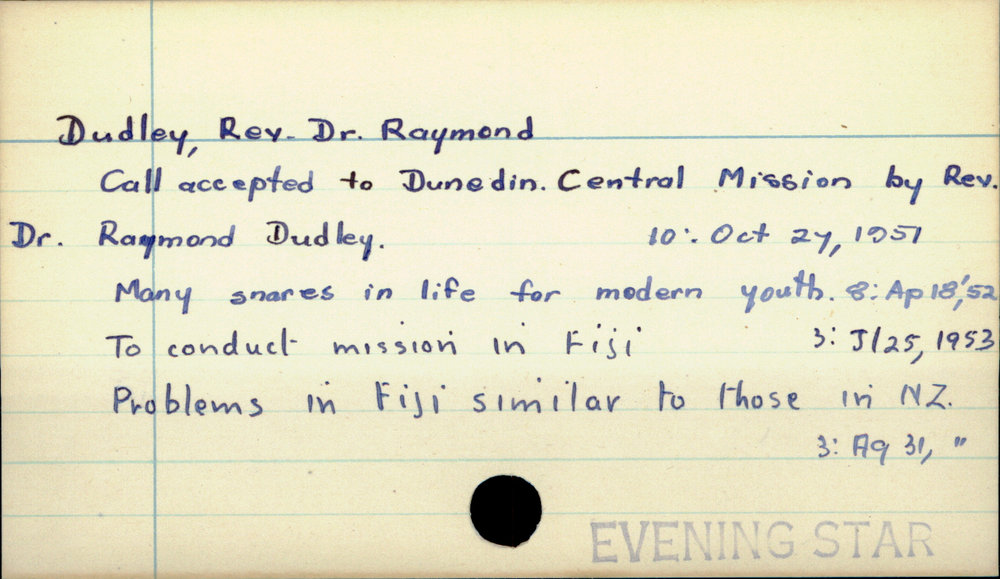 Dudley, Rev. Dr. Raymond
Call accepted to Dunedin. Central Mission by Rev.
Dr. Raymond Dudley. 10: Oct 24, 1951
Many snares in life for modern youth. 8: Ap 18,'52
To conduct mission in Fiji 3: Jl 25, 1953
Problems in Fiji similar to those in NZ.
3: Ag 31, "
EVENING STAR